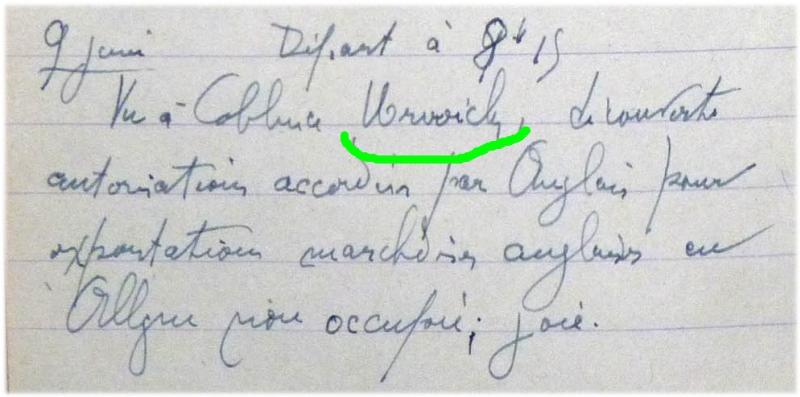 9 juin Départ à 8h 15
Vu à Coblence , découverte
autorisations accordées par Anglais pour
exportations marchdises anglaises en
Allgne non occupée; joie.